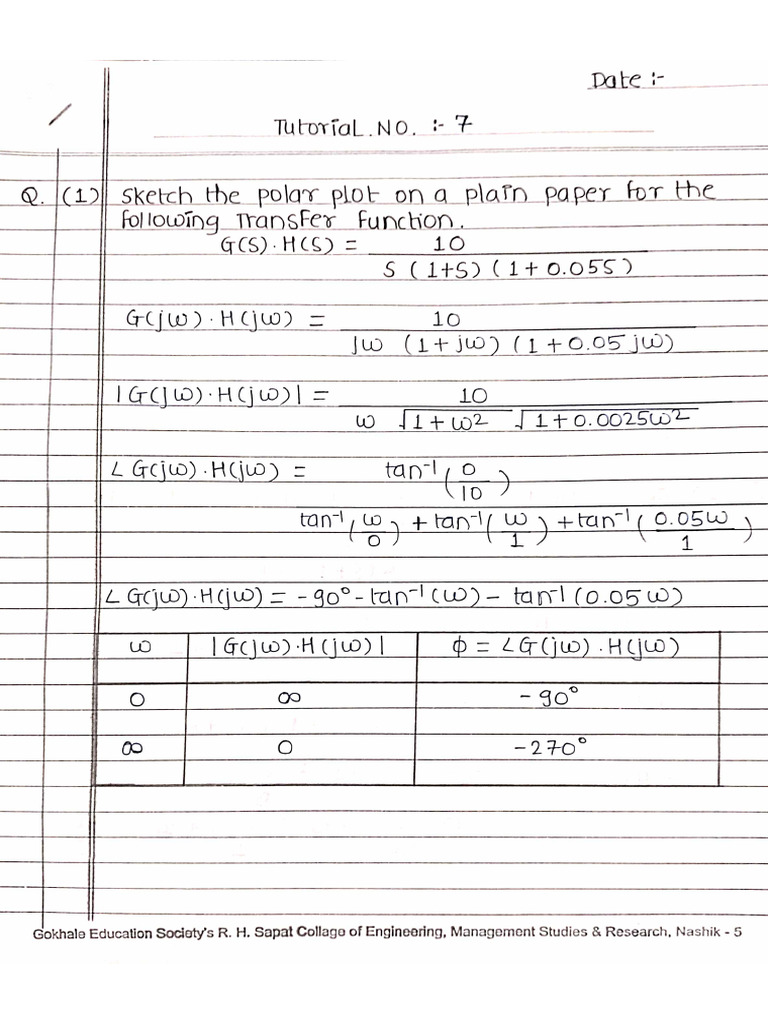 Date :-
Tutorial.NO. :- 7
Q. (1) Sketch the polar plot on a plain paper for the
following Transfer function.
G(S)·H(S) = 10
S (1+S) (1+0.05S)
G(jω)·H(jω) = 10
jω (1+jω) (1+0.05jω)
|G(jω)·H(jω)| = 10
ω √1+ω² √1+0.0025ω²
∠G(jω)·H(jω) = tan⁻¹(0/10)
tan⁻¹(ω/0) + tan⁻¹(ω/1) + tan⁻¹(0.05ω/1)
∠G(jω)·H(jω) = -90° - tan⁻¹(ω) - tan⁻¹(0.05ω)
ω |G(jω)·H(jω)| ϕ = ∠G(jω).H(jω)
0 ∞ -90°
∞ 0 -270°
Gokhale Education Society's R. H. Sapat Collage of Engineering, Management Studies & Research, Nashik - 5